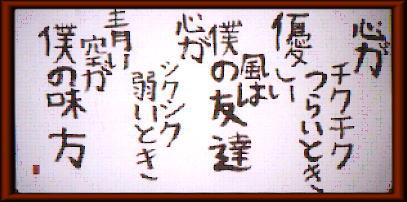 心が
チクチク
つらいとき
優しい
風は
僕の友達
心が
シクシク
弱いとき
青い
空が
僕の味方